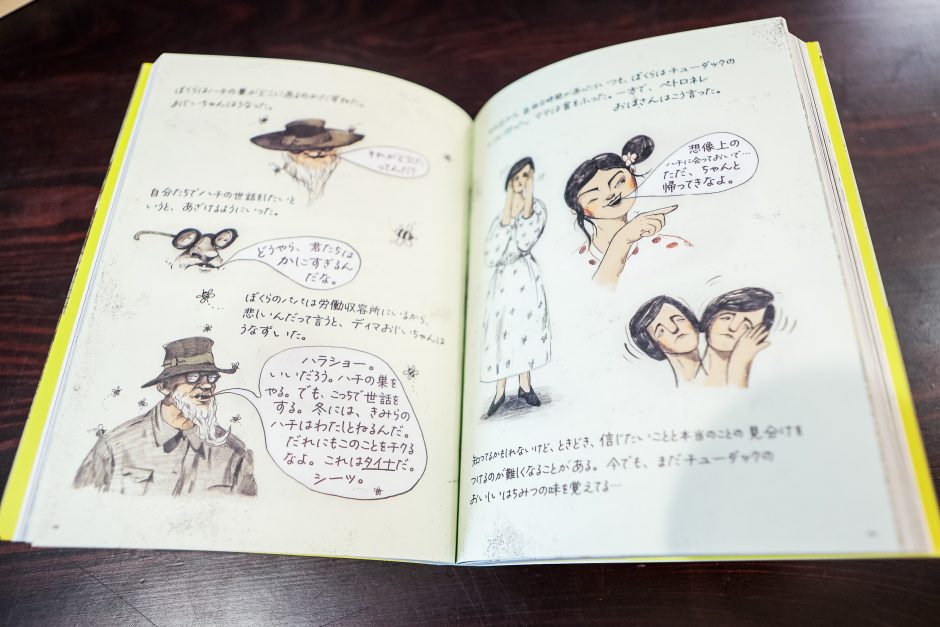 ぼくらはハチの巣がどこにあるのかたずねた。
おじいちゃんはうなった。
それがどうした
ってんだ!?
自分たちでハチの世話をしたいと
いうと、あざけるようにいった。
どうやら、君たちは
かにすぎるん
だな。
ぼくらのパパは労働収容所にいるから、
悲しいんだって言うと、ディマおじいちゃんは
うなずいた。
ハラショー。
いいだろう。ハチの巣を
やる。でも、こっちで世話を
する。冬には、きみらの
ハチはわたしとねるんだ。
だれにもこのことをチクる
なよ。これはタイ士だ。
シーッ。
いつも、ぼくらはチューダックの
ママは首をふった。一方で、ペトロネレ
おばさんはこう言った。
想像上の
ハチに会っておいで…
ただ、ちゃんと
帰ってきなよ。
知ってるかもしれないけど、ときどき、信じたいことと本当のことの見分けを
つけるのが難しくなることがある。今でも、まだチューダックの
おいしいはちみつの味を覚えてる…